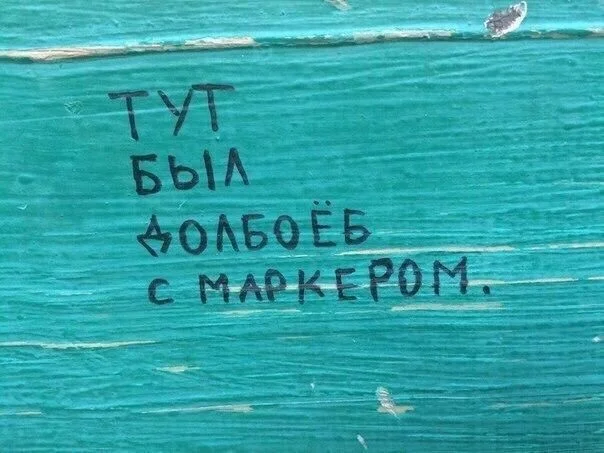 ТУТ
БЫЛ
ДОЛБОЁБ
С МАРКЕРОМ.